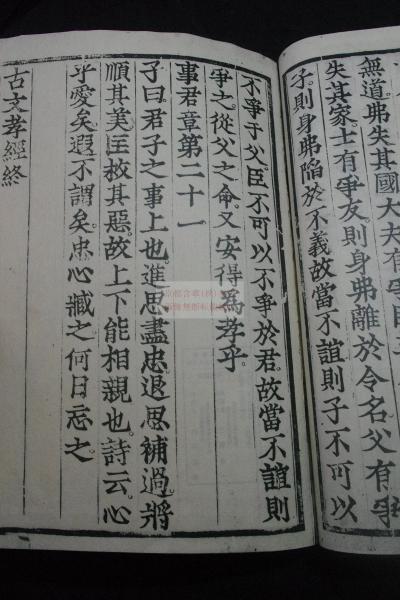 無道弗失其國大夫有爭臣
失其家士有爭友則身弗離於令名父有爭
子則身弗陷於不義故當不誼則子不可以
不爭于父臣不可以不爭於君故當不誼則
爭之從父之命又安得爲孝乎
事君章第二十一
子曰君子之事上也進思盡忠退思補過將
順其美匡救其惡故上下能相親也詩云心
乎愛矣遐不謂矣忠心臧之何日忘之
古文孝經終